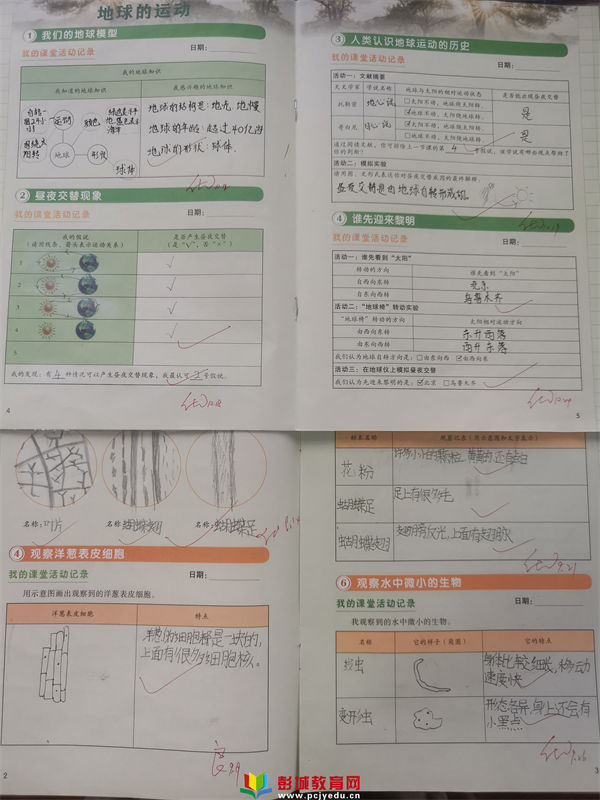 地球的运动
1 我们的地球模型
我的课堂活动记录
日期:
我的地球知识
我知道的地球知识
我感兴趣的地球知识
地球
形状
球体
地球的结构是:地壳,地幔
地球的年龄:超过40亿岁
地球的形状:球体.
2 昼夜交替现象
我的课堂活动记录
日期:
我的假说
(请用线条、箭头表示运动关系)
是否产生昼夜交替
(是“√”,否“×”)
1
√
2
√
3
√
4
√
5
我的发现:有4种情况可以产生昼夜交替现象,我最认可
号假说。
4
3 人类认识地球运动的历史
我的课堂活动记录
日期:
活动一:文献摘要
天文学家
学说名称
地球与太阳的相对运动状态
是否能出现昼夜交替
托勒密
地心说
□太阳不动,地球绕太阳转。
☑地球不动,太阳绕地球转。
是
哥白尼
日心说
☑太阳不动,地球绕太阳转。
□地球不动,太阳绕地球转。
是
活动二:模拟实验
请用图、文形式表达你对昼夜交替成因的最终解释。
昼夜交替是由地球自转形成的。
4 谁先迎来黎明
我的课堂活动记录
日期:
活动一:谁先看到“太阳”
转动的方向
谁先看到“太阳”
自西向东转
北京
自东向西转
乌鲁木齐
活动二:“地球椅”转动实验
“地球椅”转动的方向
太阳相对运动方向
由西向东转
东升西落
由东向西转
西升东落
我们认为地球自转方向是:□由东向西 ☑由西向东
活动三:在地球仪上模拟昼夜交替
我们认为先迎来黎明的是:☑北京 □乌鲁木齐
5
名称:
名称:蝴蝶翅
名称:蝴蝶足
4 观察洋葱表皮细胞
我的课堂活动记录
日期:
用示意图画出观察到的洋葱表皮细胞。
洋葱表皮细胞
特点
洋葱的细胞都是一块块的,
上面有很多细胞核。
良 9.9
2
标本名称
观察记录(用示意图和文字表示)
花粉
蝴蝶足
足上有很多毛
蝴蝶翅
9.21
6 观察水中微小的生物
我的课堂活动记录
日期:
我观察到的水中微小的生物。
名称
它的样子(简图)
它的特点
身体比较细长,移动
速度快
变形虫
形态各异,身上还会有
小黑点
9.26
3
彭城教育网
www.pcjyedu.cn